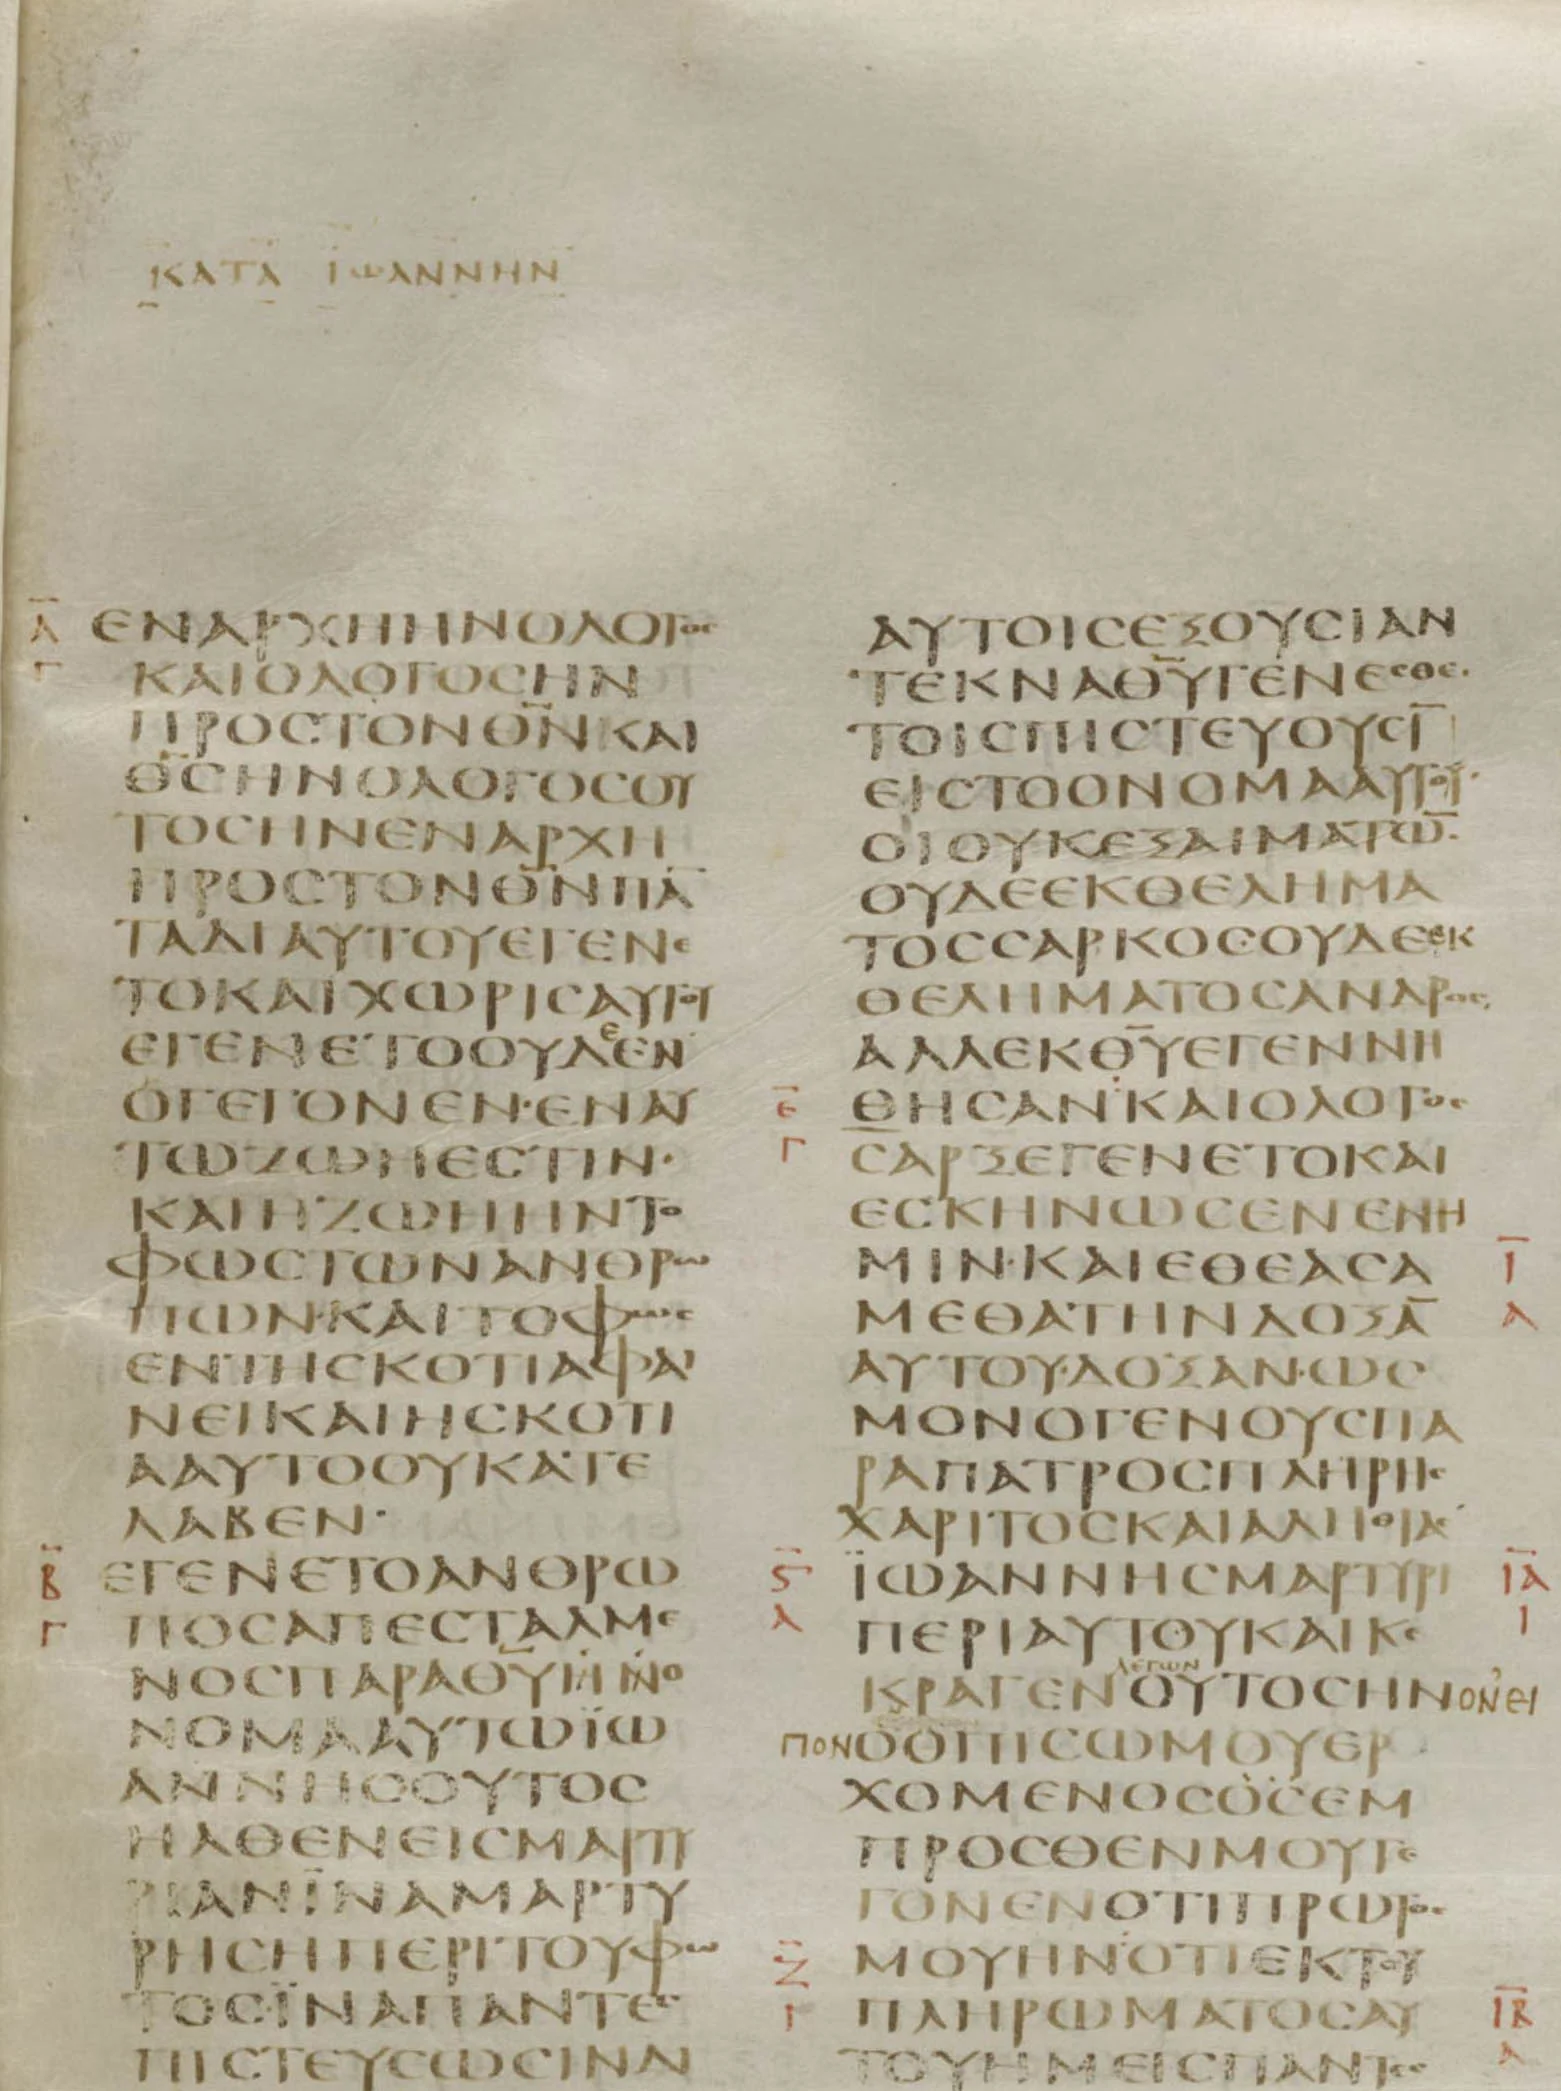 ΚΑΤΑ ΙΩΑΝΝΗΝ
Α̅
Γ
ΕΝΑΡΧΗΗΝΟΛΟΓΟϹ
ΚΑΙΟΛΟΓΟϹΗΝ
ΠΡΟϹΤΟΝΘ̅Ν̅ΚΑΙ
Θ̅Ϲ̅ΗΝΟΛΟΓΟϹΟΥ
ΤΟϹΗΝΕΝΑΡΧΗ
ΠΡΟϹΤΟΝΘ̅Ν̅ΠΑ̅
ΤΑΔΙΑΥΤΟΥΕΓΕΝΕ
ΤΟΚΑΙΧΩΡΙϹΑΥΤΟΥ
ΕΓΕΝΕΤΟΟΥΔεΕΝ
ΟΓΕΓΟΝΕΝ·ΕΝΑΥ
ΤΩΖΩΗΕϹΤΙΝ·
ΚΑΙΗΖΩΗΗΝΤΟ
ΦΩϹΤΩΝΑΝΘΡΩ
ΠΩΝ·ΚΑΙΤΟΦΩϹ
ΕΝΤΗϹΚΟΤΙΑΦΑΙ
ΝΕΙΚΑΙΗϹΚΟΤΙ
ΑΑΥΤΟΟΥΚΑΤΕ
ΛΑΒΕΝ·
Β̅
Γ
ΕΓΕΝΕΤΟΑΝΘΡΩ
ΠΟϹΑΠΕϹΤΑΛΜΕ
ΝΟϹΠΑΡΑΘ̅Υ̅ΗΝΟ
ΝΟΜΑΑΥΤΩΪΩ
ΑΝΝΗϹΟΥΤΟϹ
ΗΛΘΕΝΕΙϹΜΑΡΤΥ
ΡΙΑΝΪΝΑΜΑΡΤΥ
ΡΗϹΗΠΕΡΙΤΟΥΦΩ
ΤΟϹ·ΪΝΑΠΑΝΤΕϹ
ΠΙϹΤΕΥϹΩϹΙΝΔΙ
ΑΥΤΟΙϹΕΞΟΥϹΙΑΝ
ΤΕΚΝΑΘ̅Υ̅ΓΕΝΕϹΘΕ·
ΤΟΙϹΠΙϹΤΕΥΟΥϹΙ̅
ΕΙϹΤΟΟΝΟΜΑΑΥΤΟΥ·
ΟΙΟΥΚΕΞΑΙΜΑΤΩ̅·
ΟΥΔΕΕΚΘΕΛΗΜΑ
ΤΟϹϹΑΡΚΟϹΟΥΔΕΕΚ
ΘΕΛΗΜΑΤΟϹΑΝΔΡΟϹ
ΑΛΛΕΚΘ̅Υ̅ΕΓΕΝΝΗ
Ε̅
Γ
ΘΗϹΑΝ·ΚΑΙΟΛΟΓΟϹ
ϹΑΡΞΕΓΕΝΕΤΟΚΑΙ
ΕϹΚΗΝΩϹΕΝΕΝΗ
ΜΙΝ·ΚΑΙΕΘΕΑϹΑ
Ι̅
Α
ΜΕΘΑΤΗΝΔΟΞΑ̅
ΑΥΤΟΥ·ΔΟΞΑΝ·ΩϹ
ΜΟΝΟΓΕΝΟΥϹΠΑ
ΡΑΠΑΤΡΟϹΠΛΗΡΗϹ
ΧΑΡΙΤΟϹΚΑΙΑΛΗΘΙΑϹ
Ϛ̅
Α
ΪΩΑΝΝΗϹΜΑΡΤΥΡΙ
Ι̅Α̅
Ι
ΠΕΡΙΑΥΤΟΥΚΑΙΚΕ
λεγων
ΚΡΑΓΕΝΟΥΤΟϹΗΝΟΝΕΙ
ΠΟΝΟΟΠΙϹΩΜΟΥΕΡ
ΧΟΜΕΝΟϹΟϹΕΜ
ΠΡΟϹΘΕΝΜΟΥΓΕ
ΓΟΝΕΝΟΤΙΠΡΩΤΟϹ
Ζ̅
Γ
ΜΟΥΗΝΟΤΙΕΚΤΟΥ
ΠΛΗΡΩΜΑΤΟϹΑΥ
Ι̅Β̅
Α
ΤΟΥΗΜΕΙϹΠΑΝΤΕϹ